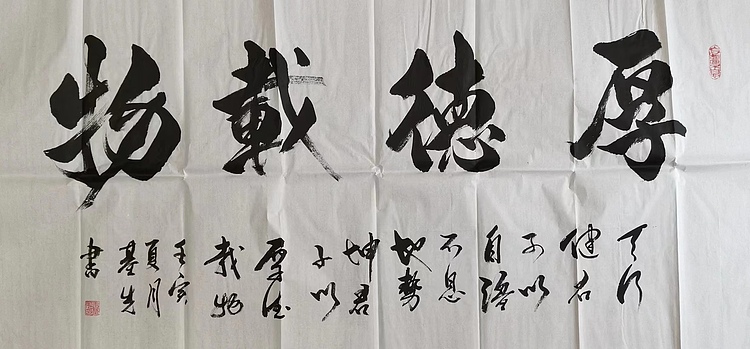 厚德載物
天行
健君
子以
自强
不息
地勢
坤君
子以
厚德
載物
壬寅
夏月
基先
書